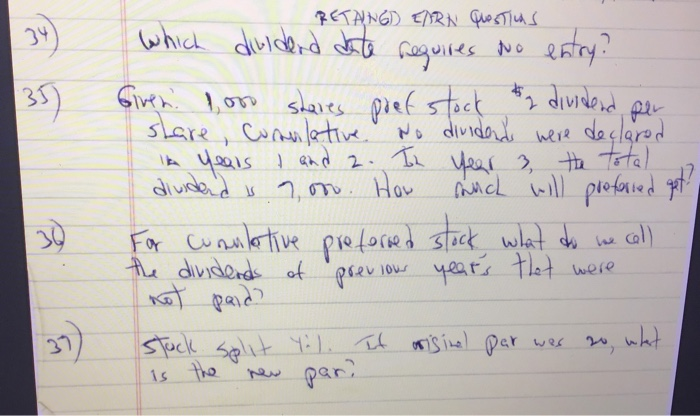 RETAINGD EARN QuesTiuS
34) Which dividend date requires No entry?
35) Given: 1,000 shares pref stock $2 dividend per
share, Cumulative. No dividends were declared
in years 1 and 2. In year 3, the total
dividend is 7,000. How much will preferred get?
36) For cumulative preferred stock what do we call
the dividends of previous year's that were
not paid?
37) Stock split 4:1. If original par was 20, what
is the new par?